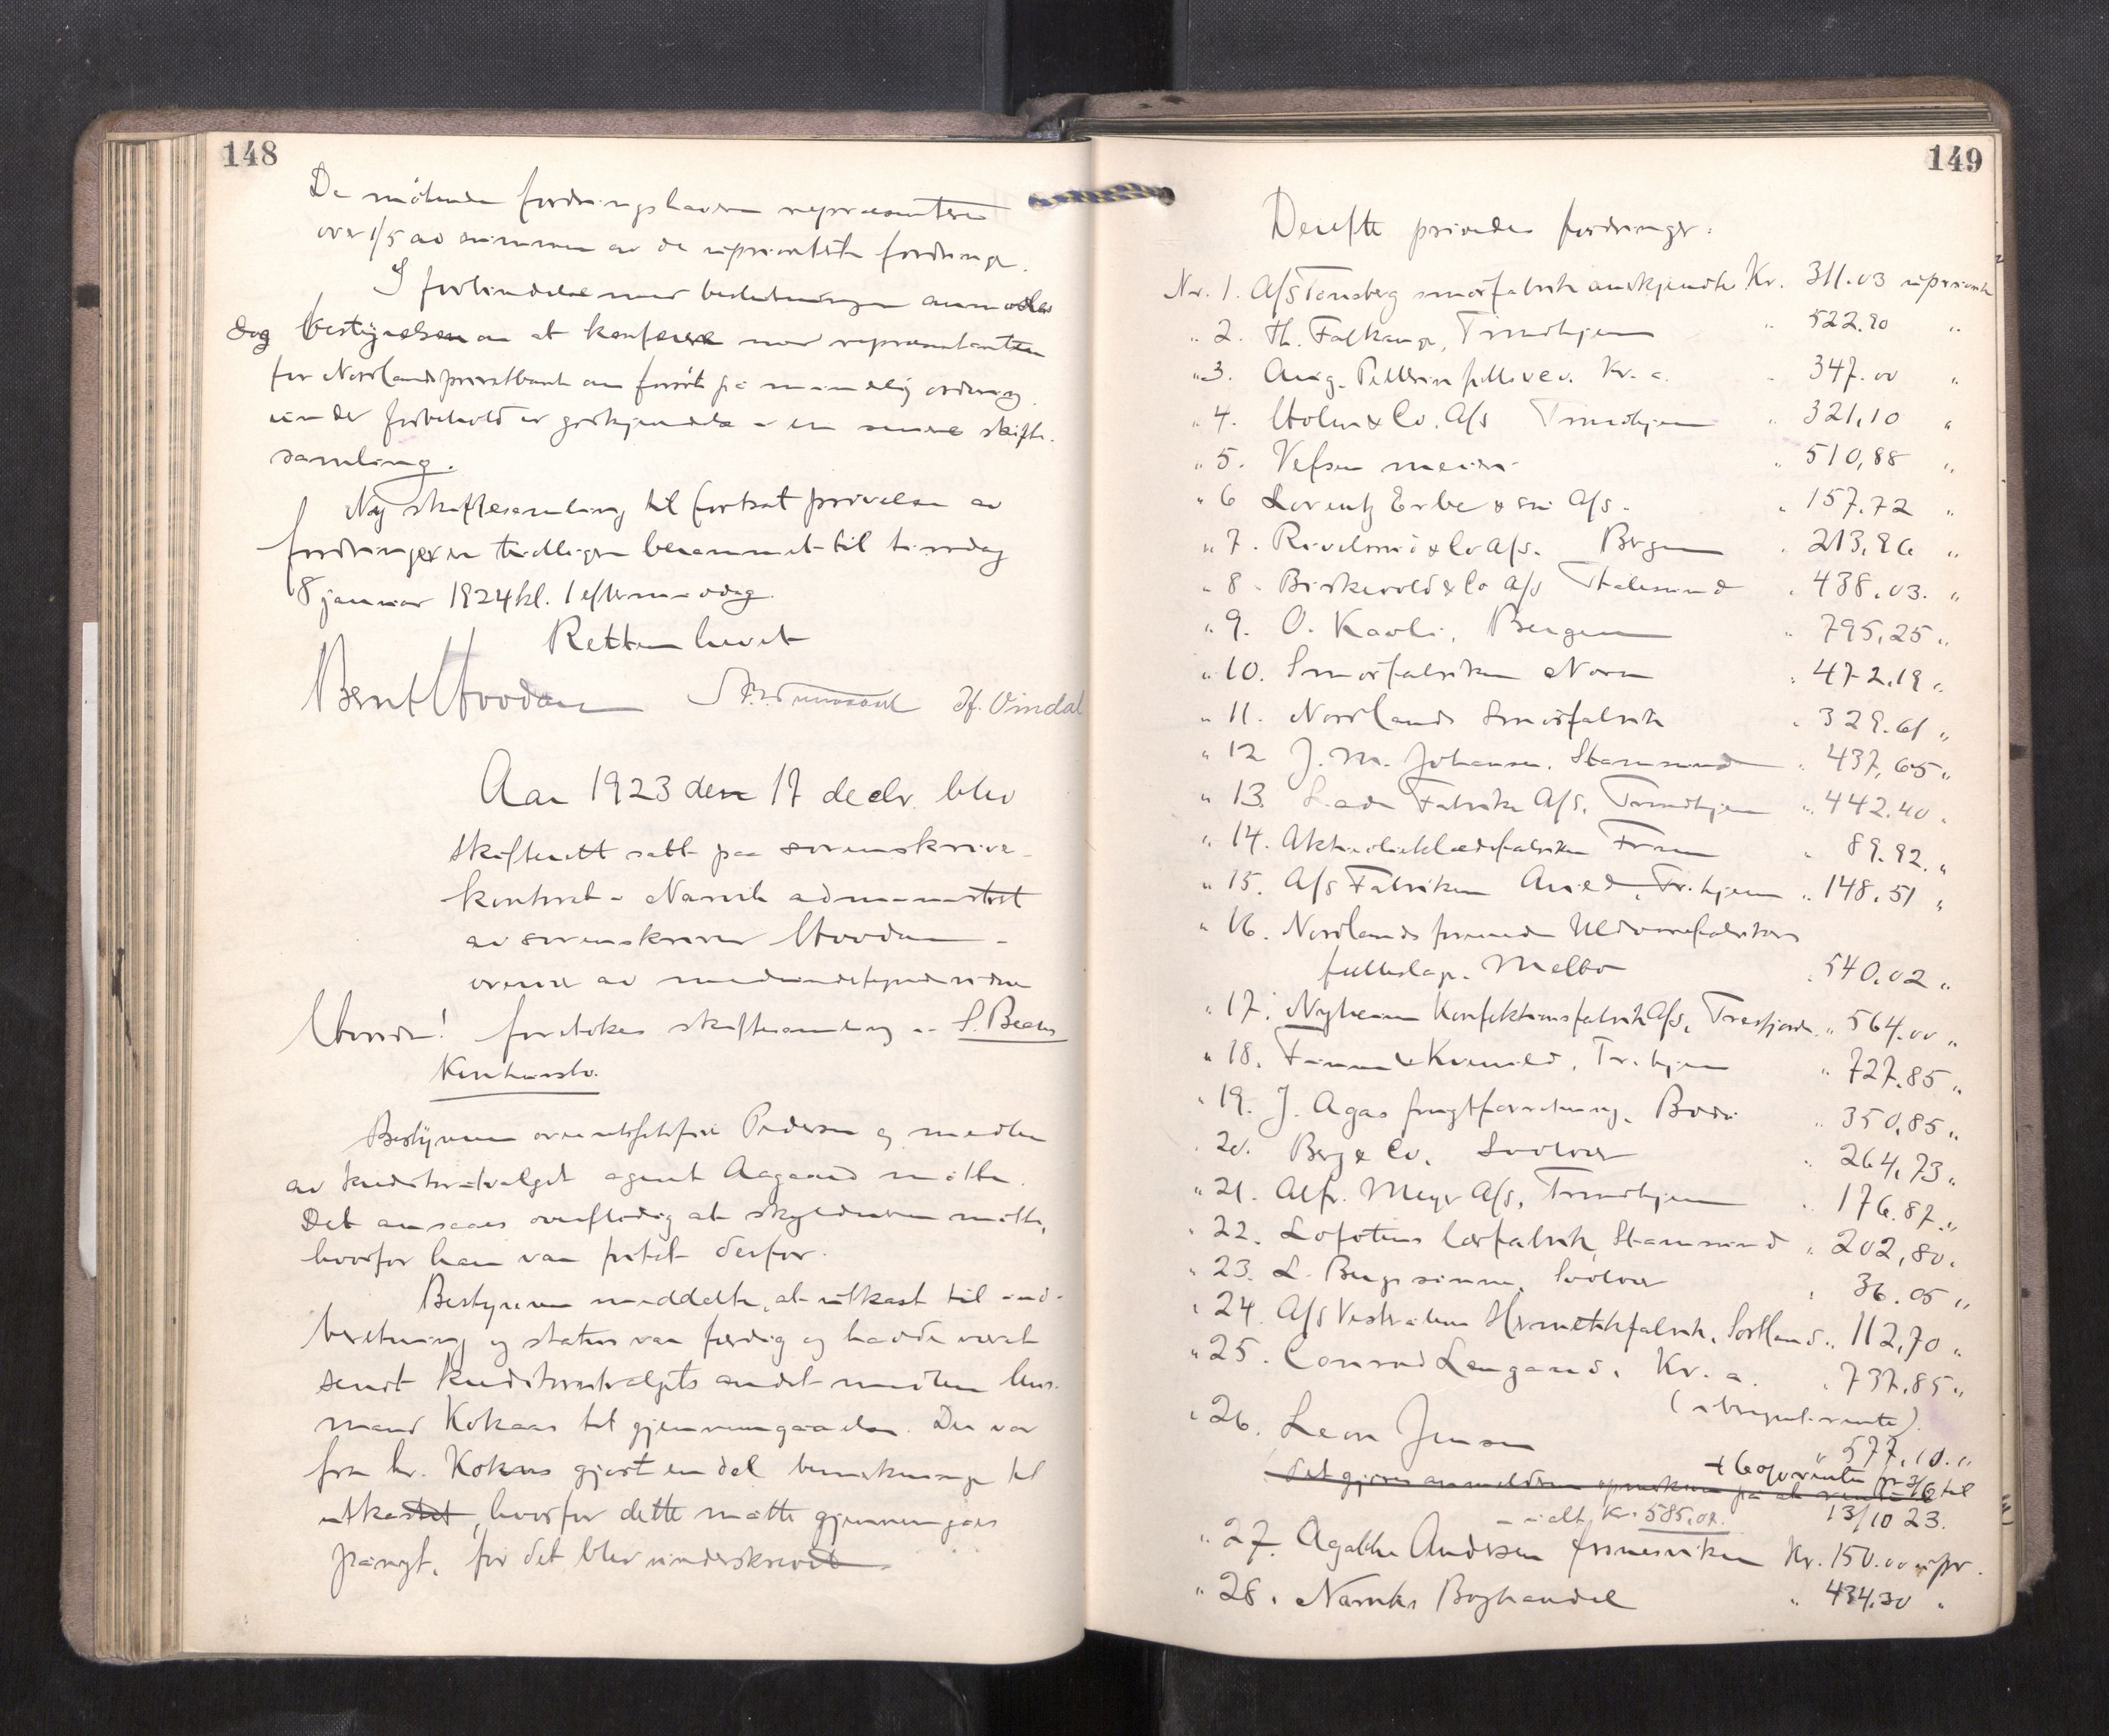 148
De møtende fordringshavere repræsenterer
over 1/5 av summen av de uprioriterte fordringer.
I forbindelse med beslutningen anmodes
dog bestyrelsen om at konferere med repræsentanten
for Nordlands privatbank om forsøk på mindelig ordning
under forbehold av godkjendelse i en senere skifte-
samling.
Ny skiftesamling til fortsat prøvelse av
fordringer er tidligere berammet til tirsdag
8 januar 1924 kl. 1 eftermiddag.
Retten hevet
Bernt Hoodan Hf. Vindal
Aar 1923 den 17 decbr. blev
skifterett satt paa sorenskriver-
kontoret i Narvik administrert
av sorenskriver
overvær av medundertegnede vidne
Hvorda! foretokes skiftesamling i S. Beers
Konkursbo.
Bestyreren overretssakfører Pedersen og medlem
av kreditorutvalget agent Aagaard møtte.
Det ansaaes overflødig at skyldneren møtte,
hvorfor han var fritat derfor.
Bestyreren meddelte, at utkast til ind-
beretning og status var færdig og hadde været
sendt kreditorutvalgets andet medlem
mand Kokaas til gjennemgaaelse. Der var
fra hr. Kokaas gjort en del bemerkninger til
utkastet, hvorfor dette måtte gjennemgåes
pånyt, før det blev underskrevet
149
Derefter prøvedes fordringer:
Nr. 1. A/S Tønsberg smørfabrik anerkjendte Kr. 311.03 uprioritert
" 2. Th. Falkanger, Trondhjem " 522.90 "
" 3. Aug. Pellerin fils & Kr.a. " 347.00 "
" 4. Holm & Co. A/S Trondhjem " 321,10 "
" 5. Vefsn meieri " 510,88 "
" 6 Lorentz Erbe & søn A/S. " 157.72 "
" 7. & Co A/S. Bergen " 213,86 "
" 8. & Co A/S Aalesund " 438.03. "
" 9. O. Kavli, Bergen " 795,25 "
" 10. Smørfabriken Nora " 472.19 "
" 11. Nordlands Smørfabrik " 329.61 "
" 12 J. M. Johansen, Stamsund " 437,65 "
" 13. Lade Fabriker A/S, Trondhjem " 442.40 "
" 14. Aktieoljeklædefabriken Fram " 89.92. "
" 15. A/S Fabriken Tr.hjem " 148.51 "
" 16. Nordlands forenede Uldvarefabrikers
fælleslager. Melbo " 540.02 "
" 17. Nyheim Konfektionsfabrik A/S, Tresfjord. " 564.00 "
" 18. & Kvenild, Tr.hjem " 727.85 "
" 19. J. Agas frugtforretning, Bodø " 350,85 "
" 20. Berg & Co. Svolvær " 264,73 "
" 21. Alfr. Meyer A/S, Trondhjem " 176.87. "
" 22. Lofotens lærfabrik, Stamsund " 202,80. "
" 23. L. Berges sønner, Svolvær " 36.05 "
" 24. A/S Vesteraalens Hermetikfabrik, Sortland. " 112,70 "
" 25. Conrad Langaard. Kr.a. " 737.85 "
( rente).
" 26. Leon Jensen " 577.10. "
+ 6 % rente fr 3/6 til
13/10 23.
- ialt Kr. 585.02.
" 27. Agathe Andersen Kr. 150.00 upr.
" 28. Narviks Boghandel " 434.30 "